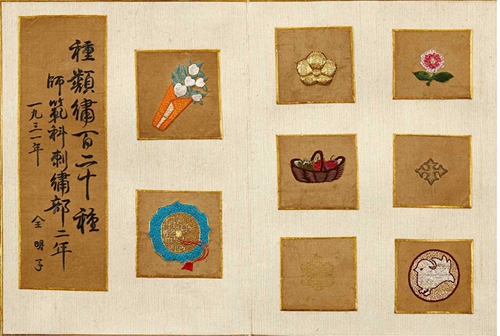 種類繡百二十種
師範科刺繡部二年
一九三一年
全明子